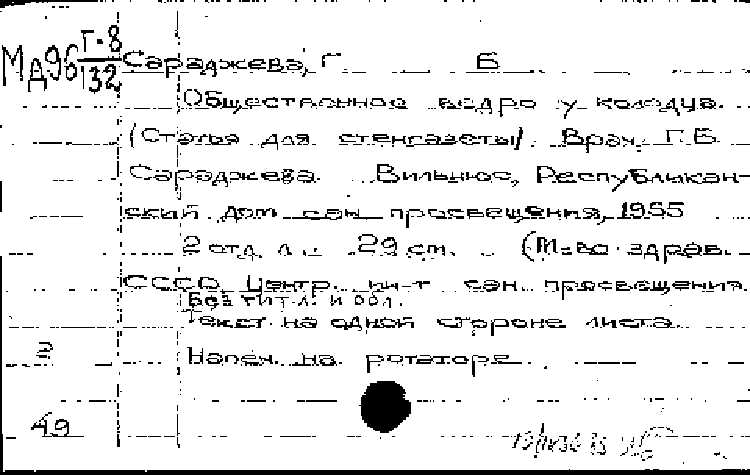 МД96 Г-8/132
Сараджева, Г Б
Общественное ведро у колодца.
(Статья для стенгазеты). Врач Г.Б.
Сараджева. Вильнюс, Республикан-
ский дом сан. просвещения, 1955
2 отд. л. 29 см. (М-во здрав.
СССР. Центр. ин-т сан. просвещения.
Без тит. л. и обл.
Текст на одной стороне листа.
Напеч. на ротаторе
2
49